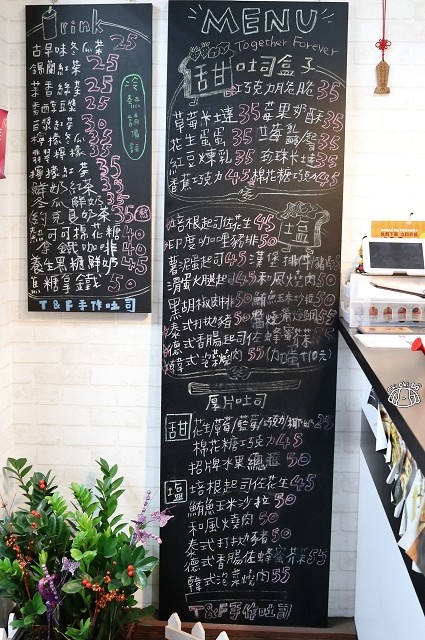 Drink
古早味冬瓜茶 25
錫蘭紅茶 25
茶香綠茶 25
豆漿紅茶 30
檸檬冬瓜 35
翡翠檸檬 35
鮮奶紅茶 35
冬瓜鮮奶 35
約克真奶茶 35
熱可可棉花糖 40
拿鐵咖啡 40
養生黑糖鮮奶 45
焦糖拿鐵 50
T&F手作吐司
MENU
Together Forever
甜 吐司盒子
巧克力脆脆 35
草莓卡士達 35 莓果奶酥 35
花生蛋蛋 35
紅豆煉乳 35 珍珠卡士達 35
香蕉巧克力 45 棉花糖巧克力 45
鹽
培根起司佐花生 45
印度咖哩豬排 50
薯泥蛋起司 45
和風燒肉 50
黑胡椒肉排 50 鮪魚玉米沙拉 50
泰式打拋豬 50
德式香腸起司佐蜂蜜芥茉 55
韓式泡菜燒肉 55 (加蛋+10元)
厚片吐司
甜 花生/草莓/藍莓/巧克力/椰 25
棉花糖巧克力 45
招牌水果總匯 50
塩 培根起司佐花生 45
鮪魚玉米沙拉 50
和風燒肉 50
泰式打拋豬 50
德式香腸佐蜂蜜芥茉 55
韓式泡菜燒肉 55
T&F手作吐司